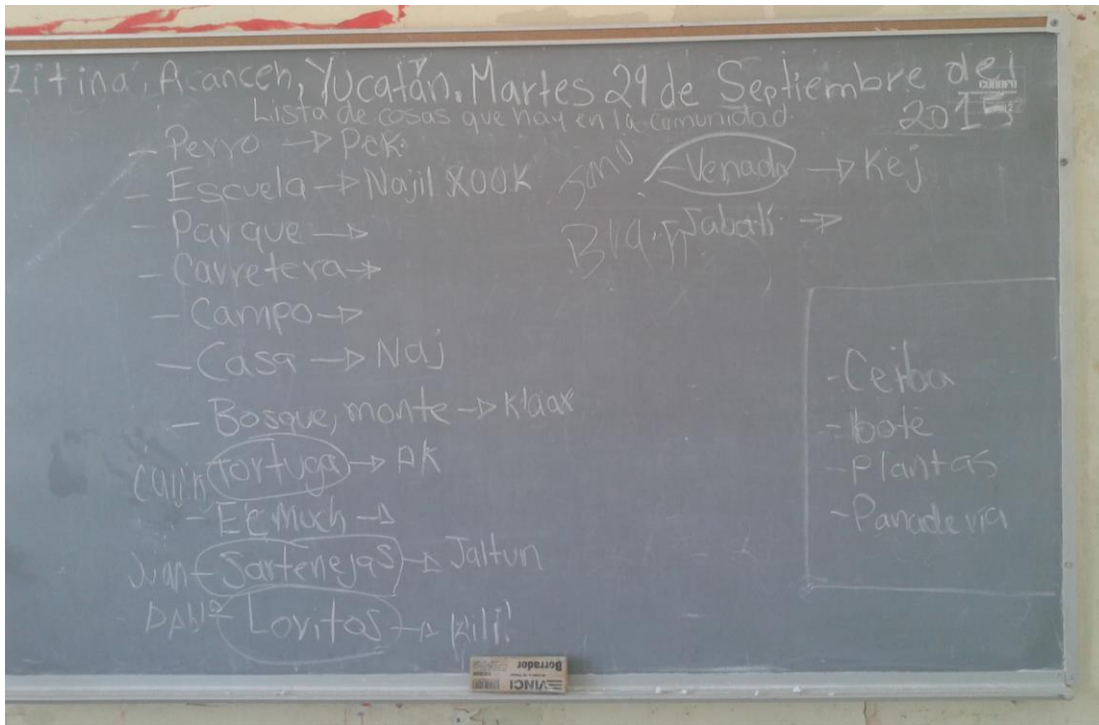 Zitina', Acanceh, Yucatán. Martes 29 de Septiembre del
2015
Lista de cosas que hay en la comunidad.
- Perro → Pek
- Escuela → Najil XOOK
- Parque →
- Carretera →
- Campo →
- Casa → Naj
- Bosque, monte → K'aax
Tortuga → AK
- EK Much →
Juan - Sartenejas → Jaltun
Pablo - Loritos → K'ili'
- Venado → Kej
Jabalí →
- Ceiba
- bote
- Plantas
- Panadería
VINCI
Borrador